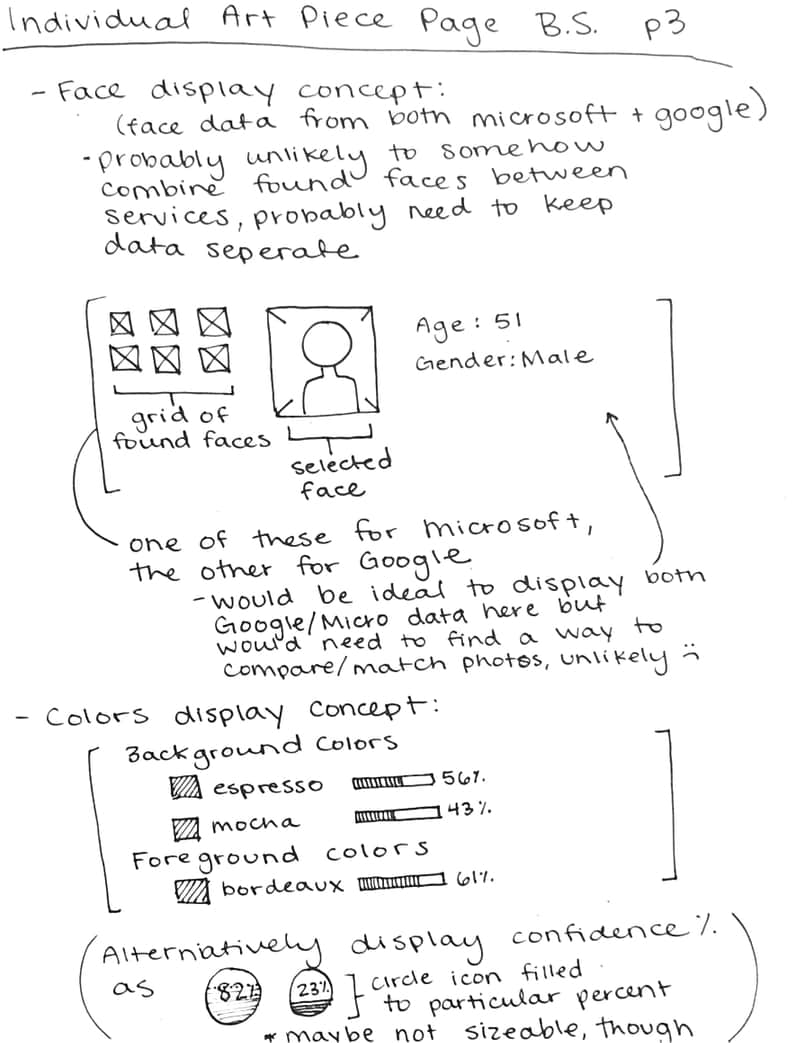 Individual Art Piece Page B.S. p3
- Face display concept:
(face data from both microsoft + google)
- probably unlikely to somehow
combine found faces between
services, probably need to keep
data seperate
Age: 51
Gender: Male
grid of
found faces
selected
face
one of these for microsoft,
the other for Google
- would be ideal to display both
Google/Micro data here but
would need to find a way to
compare/match photos, unlikely :(
- Colors display concept:
Background Colors
espresso 56%
mocha 43%
Foreground colors
bordeaux 61%
(Alterniatively display confidence %)
as 82% 23% } circle icon filled
to particular percent
* maybe not sizeable, though